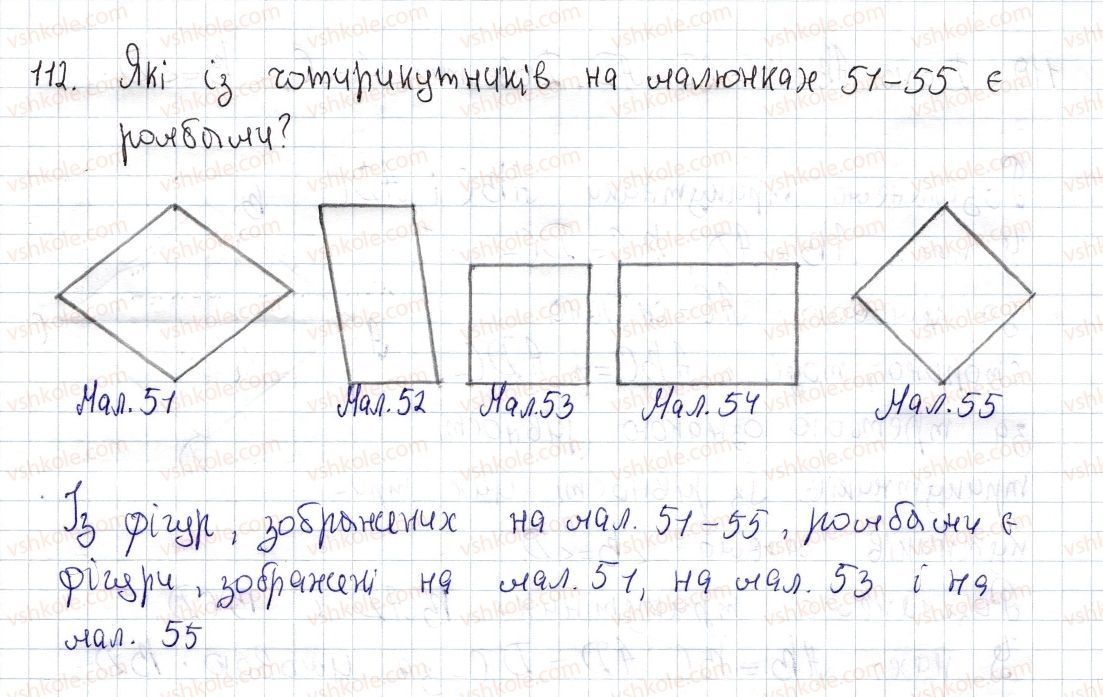 112. Які із чотирикутників на малюнках 51-55 є
ромбами?
Мал. 51
Мал. 52
Мал. 53
Мал. 54
Мал. 55
Із фігур, зображених на мал. 51-55, ромбами є
фігури, зображені на мал. 51, на мал. 53 і на
мал. 55